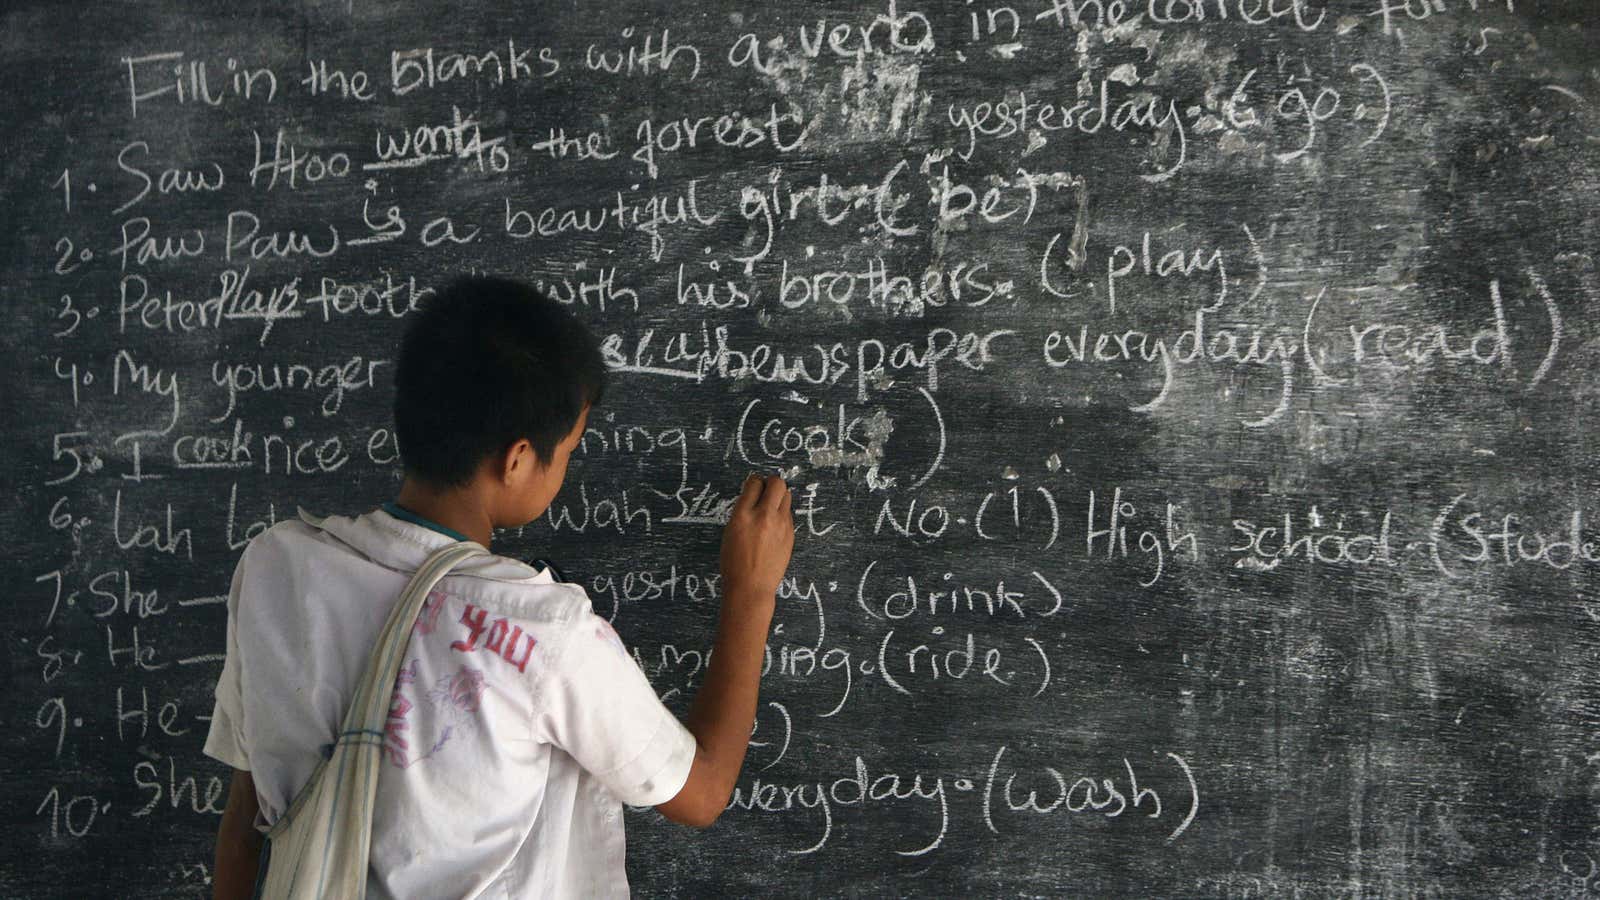 Fill in the blanks with a verb in the correct form
1. Saw Htoo went to the forest yesterday. (go.)
2. Paw Paw is a beautiful girl. (be)
3. Peter plays footb with his brothers. (play)
4. My younger newspaper everyday (read)
5. I cook rice ning. (cook)
6. Lah Wah No. (1) High school. (Stude
7. She yesterday. (drink)
8. He ing. (ride.)
9. He
10. She everyday. (wash)
YOU